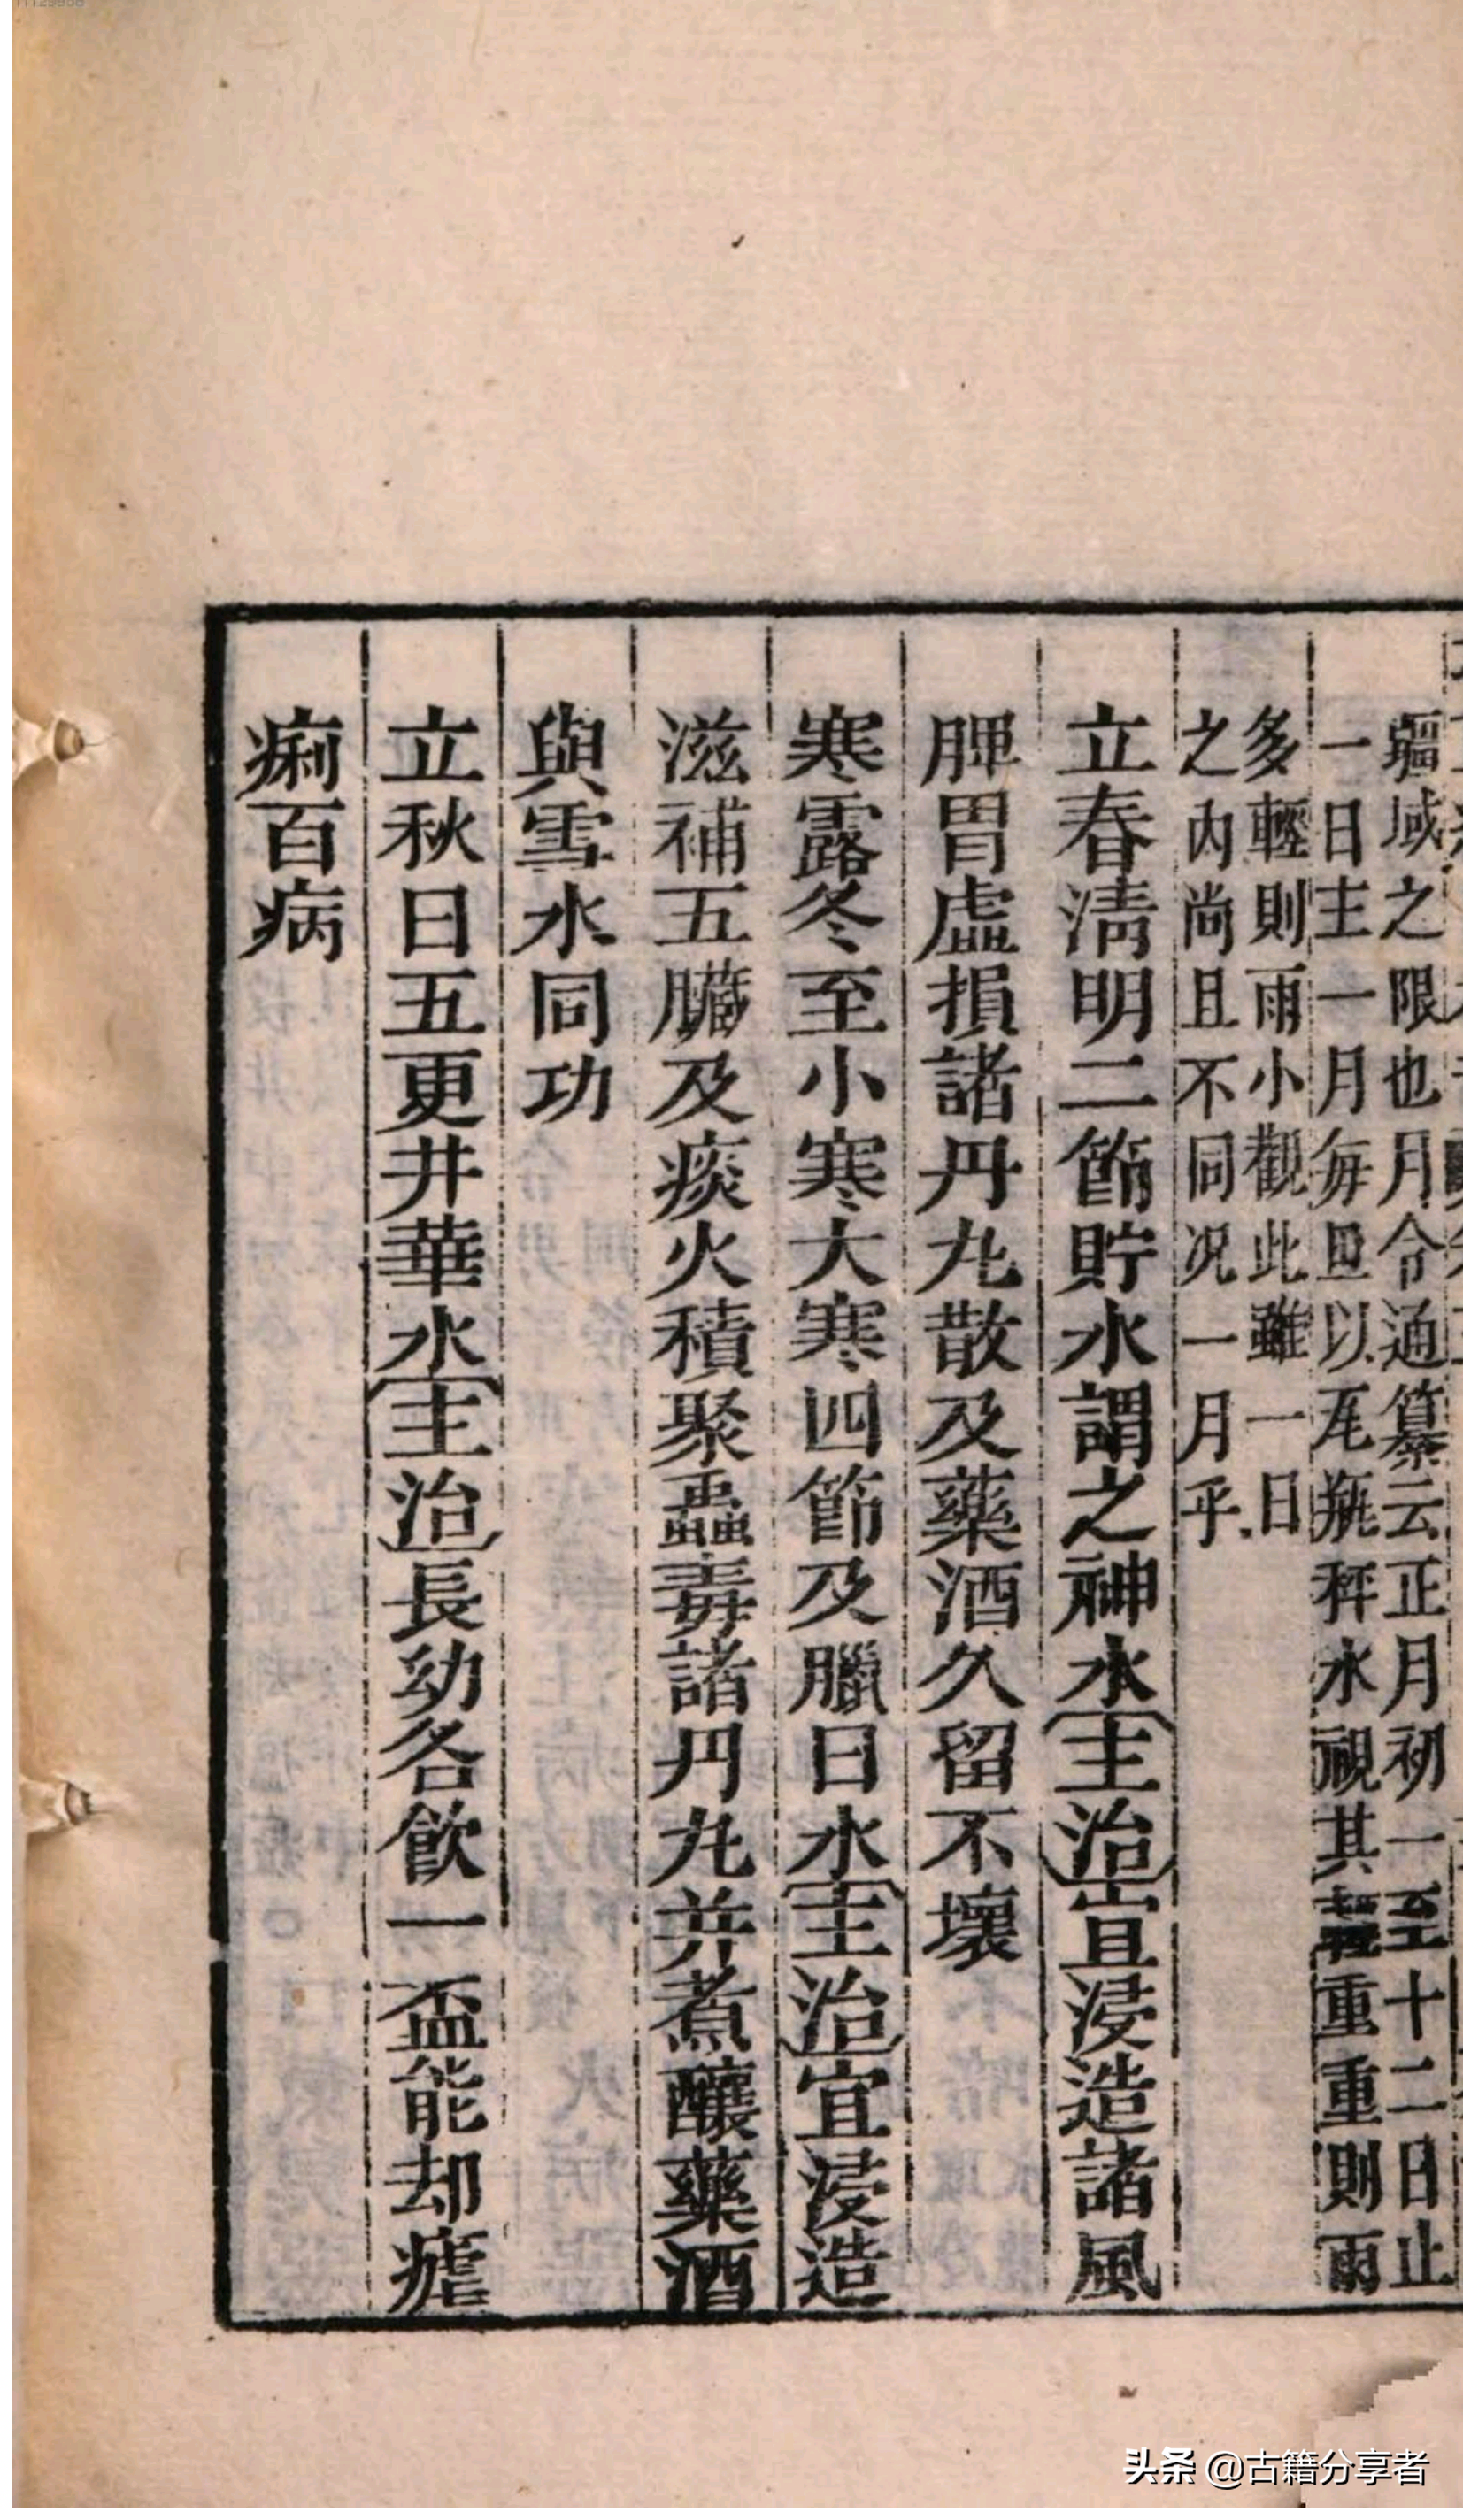 疆域之限也月令通纂云正月初一至十二日止
一日主一月每旦以瓦瓶秤水視其輕重重則雨
多輕則雨小觀此雖一日
之內尚且不同况一月乎
立春淸明二節貯水謂之神水主治宜浸造諸風
脾胃虛損諸丹丸散及藥酒久留不壞
寒露冬至小寒大寒四節及臘日水主治宜浸造
滋補五臟及痰火積聚蟲毒諸丹丸并煮釀藥酒
與雪水同功
立秋日五更井華水主治長幼各飮一盃能却瘧
痢百病
头条 @古籍分享者